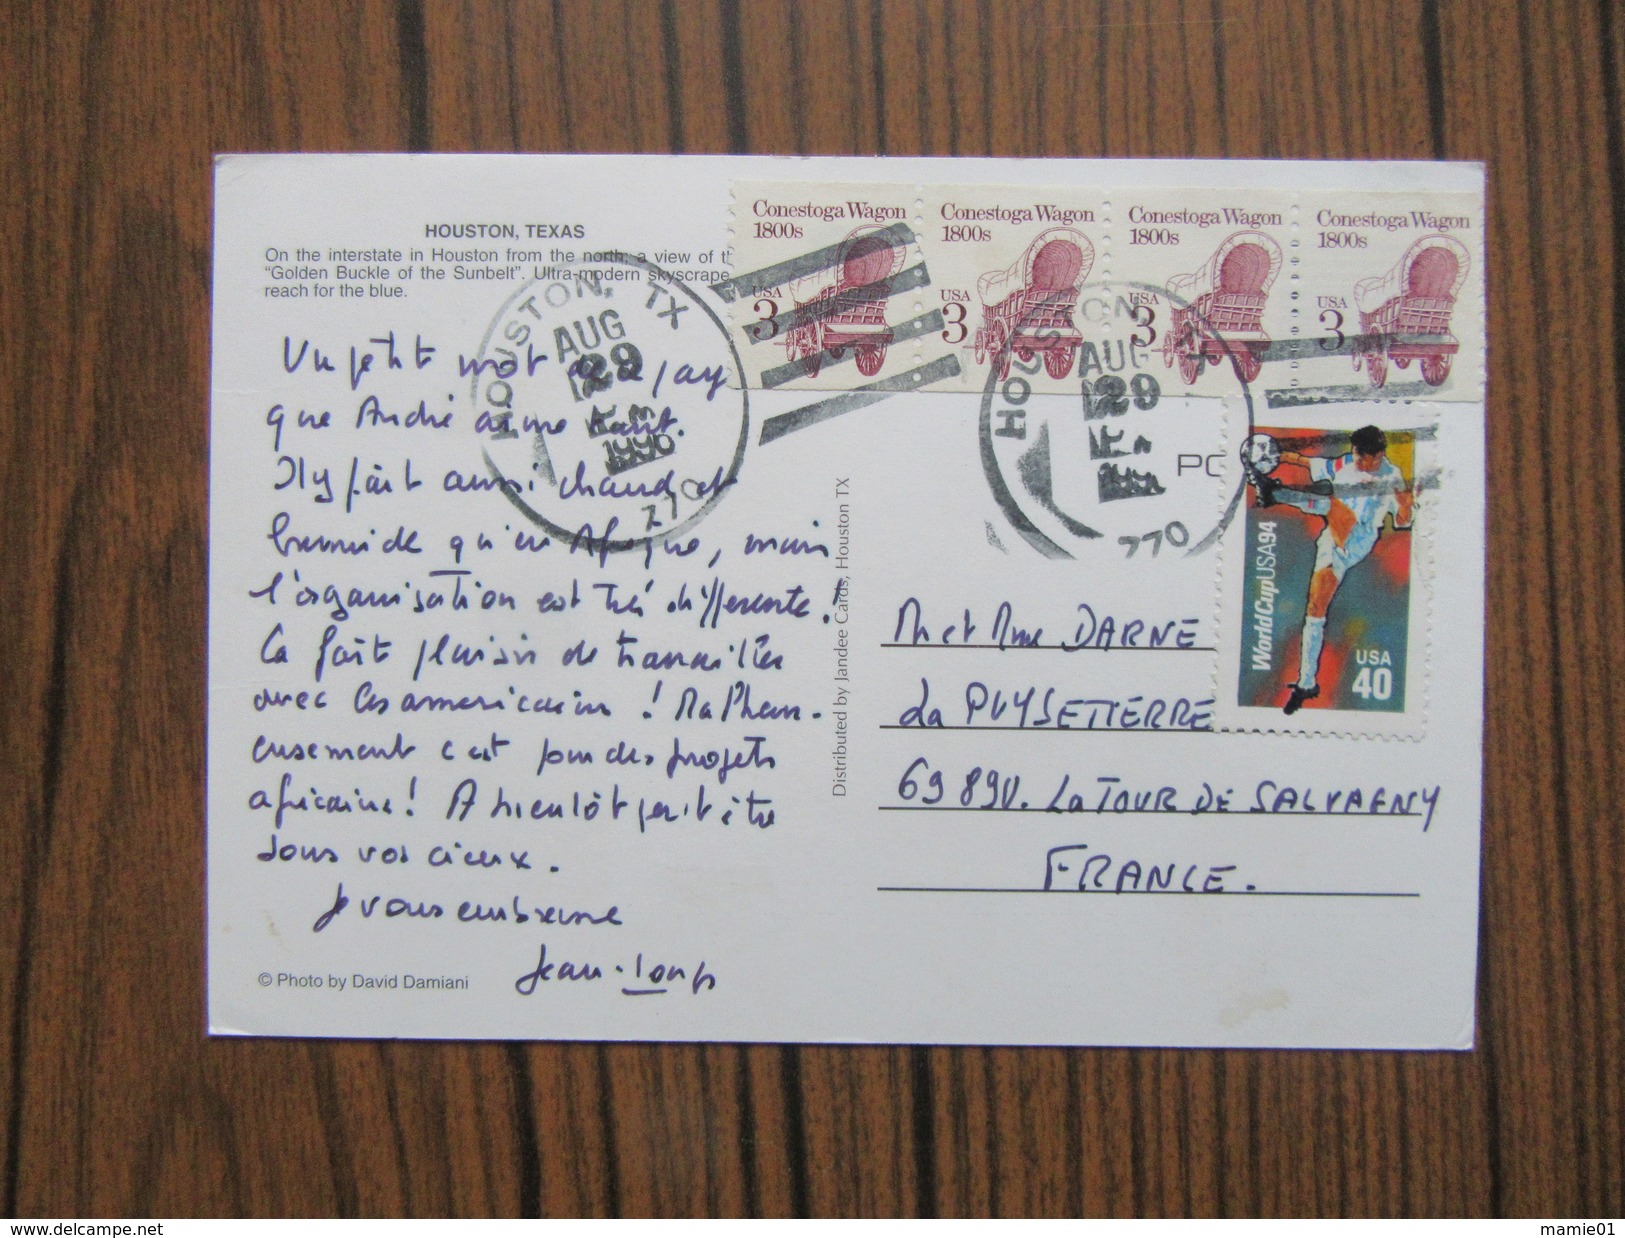 HOUSTON, TEXAS
On the interstate in Houston from the north; a view of th
"Golden Buckle of the Sunbelt". Ultra-modern skyscrape
reach for the blue.
Un petit mot de ce pays
que André aime tant.
Il y fait aussi chaud et
humide qu'en Afrique, mais
l'organisation est très différente !
Ca fait plaisir de travailler
avec les americains ! Malheur-
eusement c'est pour des projets
africains ! A bientôt peut être
sous vos cieux.
Je vous embrasse
Jean-Loup
© Photo by David Damiani
Distributed by Jandee Cards, Houston TX
Conestoga Wagon
1800s
USA
3
Conestoga Wagon
1800s
USA
3
Conestoga Wagon
1800s
USA
3
Conestoga Wagon
1800s
USA
3
HOUSTON, TX
AUG
29
1996
770
HOUSTON
AUG
29
770
PO
World Cup USA 94
USA
40
M et Mme DARNE
La PUYSETIERRE
69890. La TOUR DE SALVAGNY
FRANCE.
www.delcampe.net
mamie01